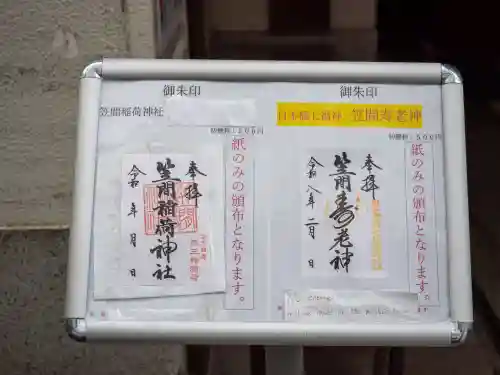 御朱印
笠間稲荷神社
初穂料:500円
紙のみの頒布となります。
奉拝
笠間稲荷神社
令和 年 月 日
御朱印
日本橋七福神 笠間寿老神
初穂料:500円
紙のみの頒布となります。
奉拝
笠間寿老神
令和八年二月 日